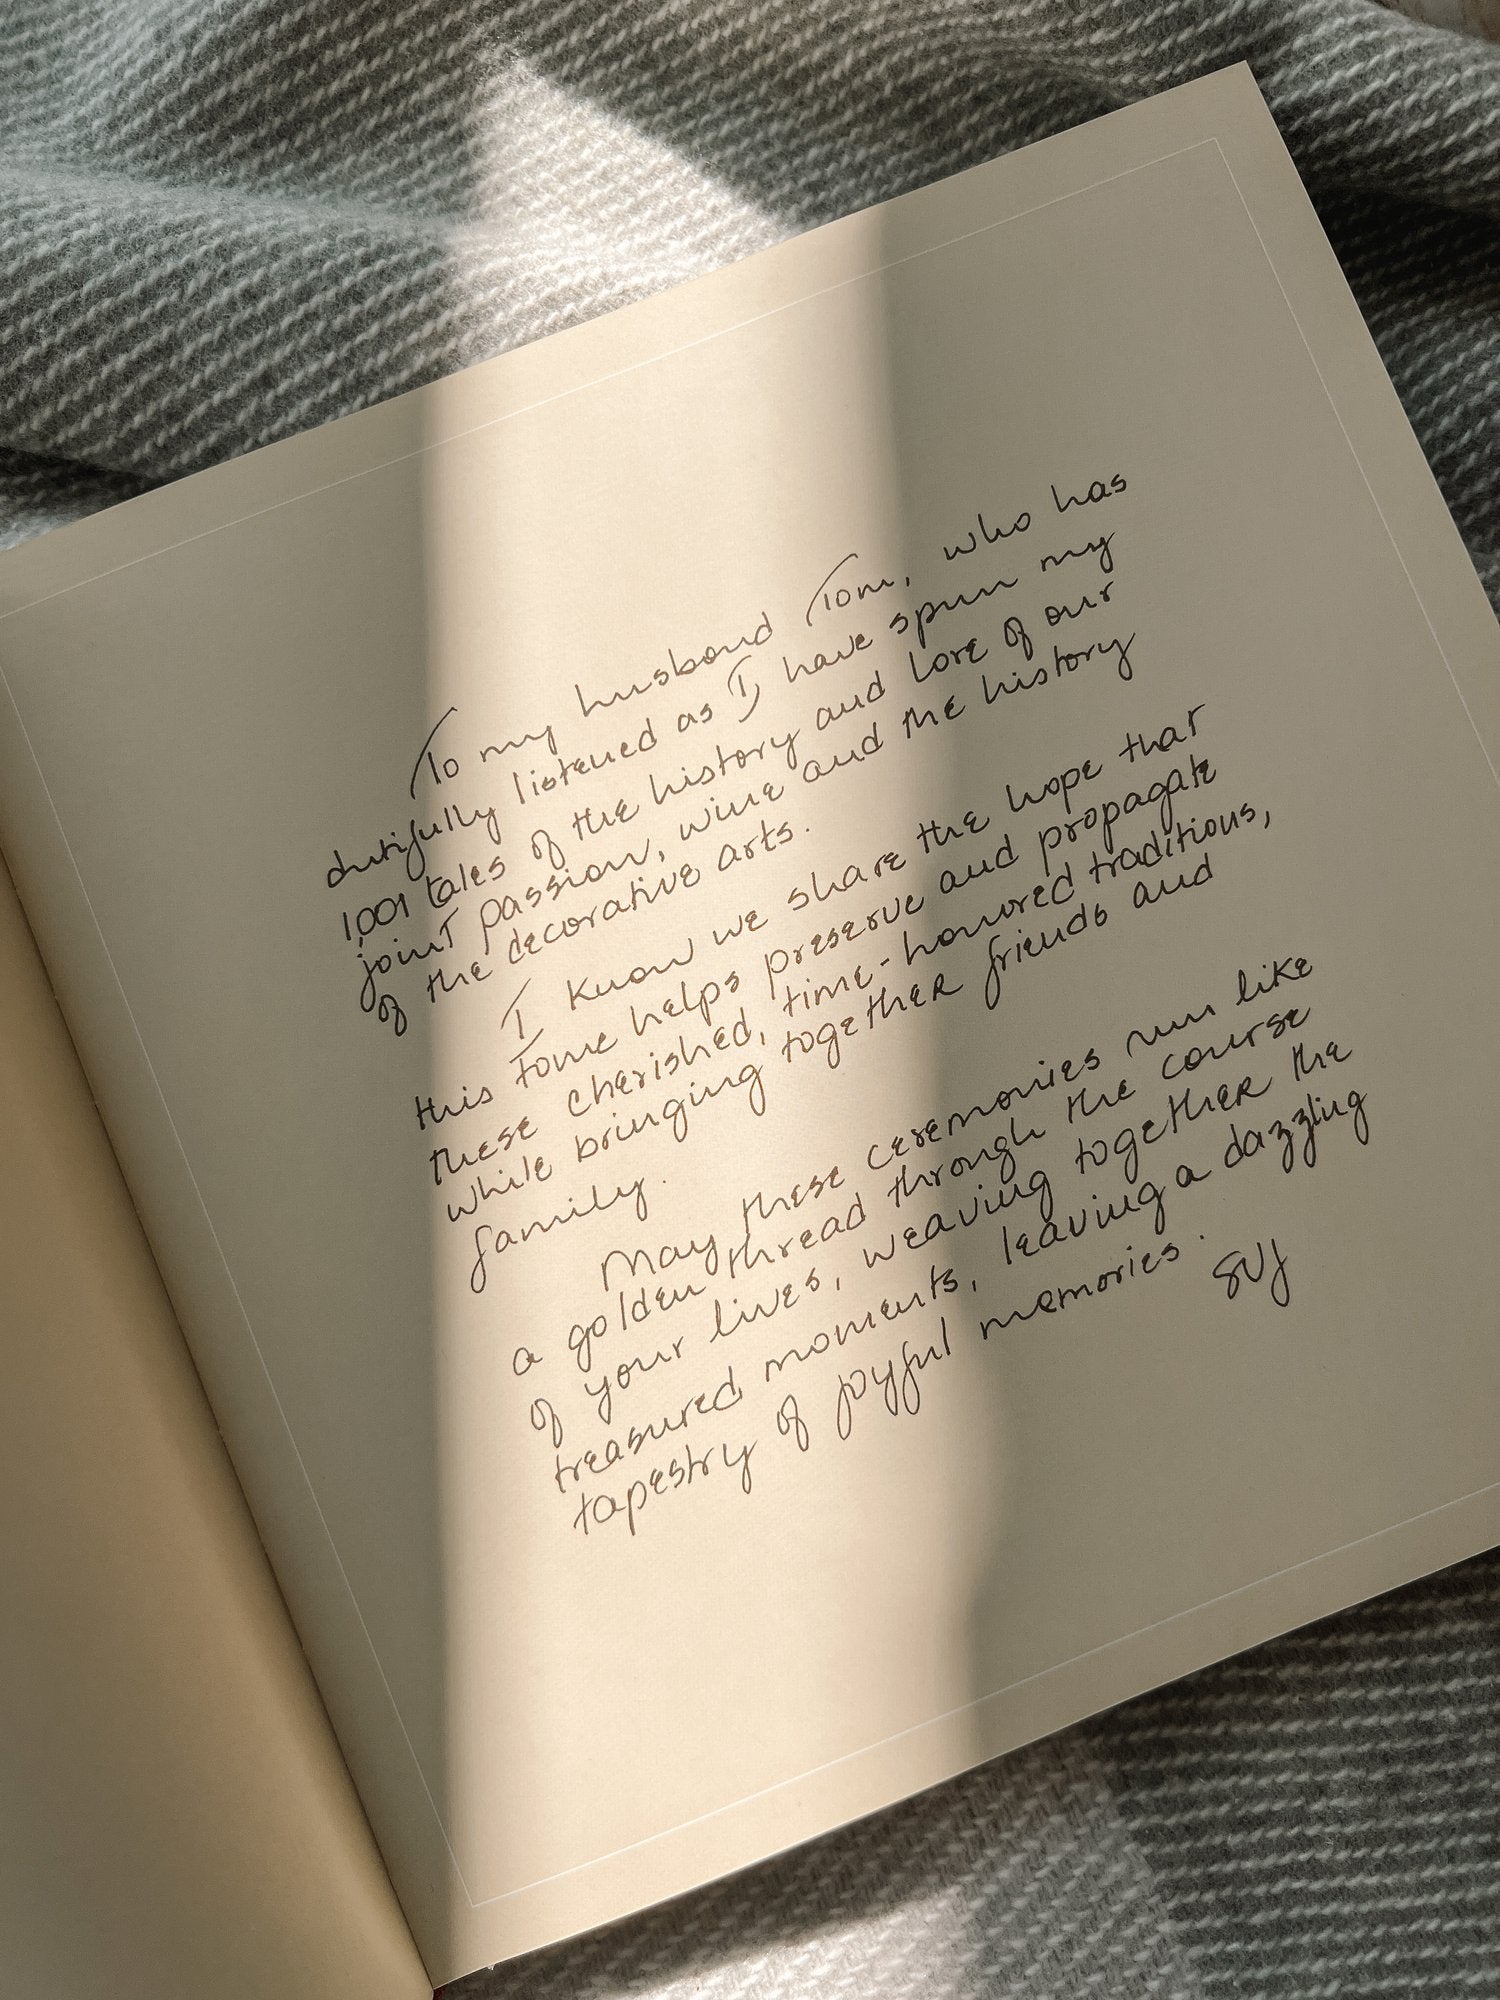 To my husband Tom, who has
dutifully listened as I have spun my
1,001 tales of the history and lore of our
joint passion, wine and the history
of the decorative arts.
I know we share the hope that
this tome helps preserve and propagate
these cherished, time-honored traditions,
while bringing together friends and
family.
May these ceremonies run like
a golden thread through the course
of your lives, weaving together the
treasured moments, leaving a dazzling
tapestry of joyful memories.
SVJ